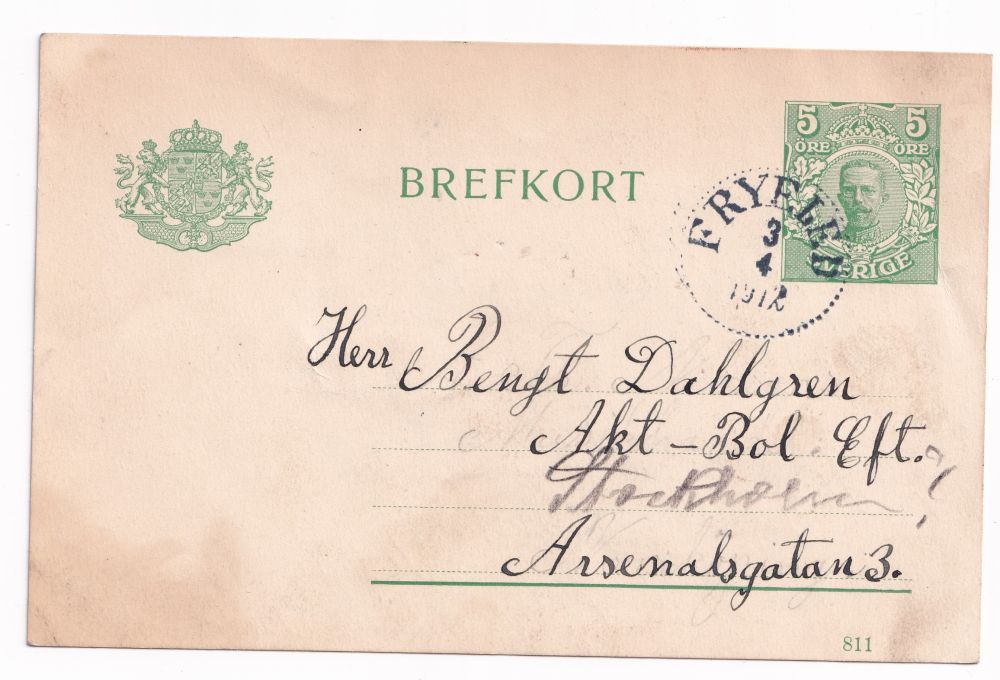 5 5
ÖRE ÖRE
BREFKORT
SVERIGE
FRYELED
3
4
1912
Herr Bengt Dahlgren
Akt-Bol. Eft.
Stockholm
Arsenalsgatan 3.
811